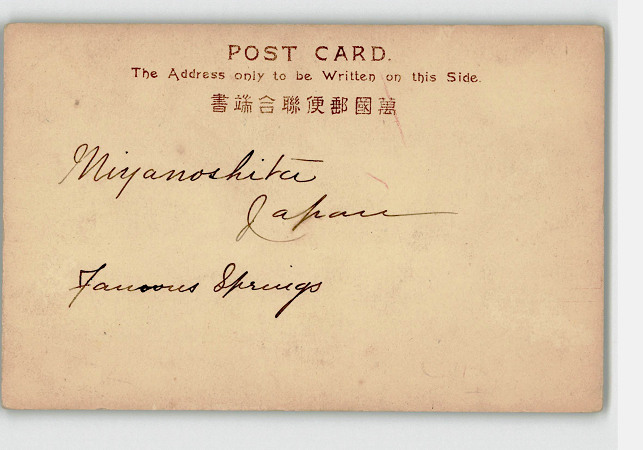 POST CARD.
The Address only to be Written on this Side.
書端合聯便郵國萬
Miyanoshita
Japan
Famous Springs